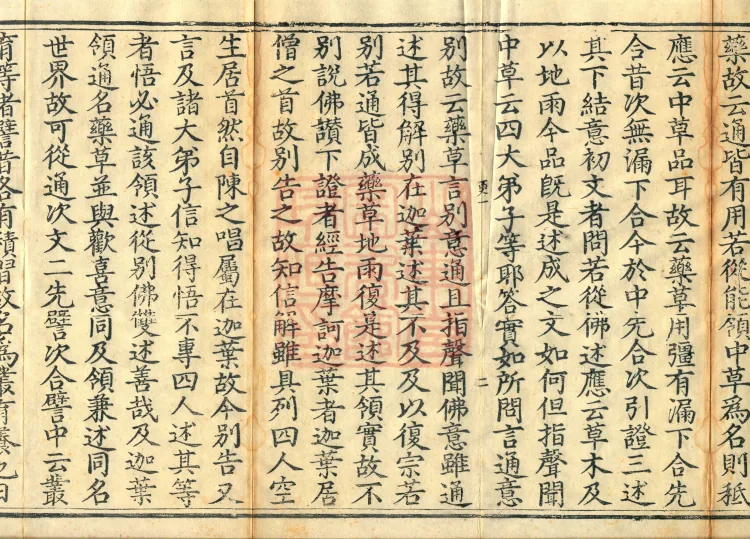 藥故云通皆有用若從能領中草爲名則秪
應云中草品耳故云藥草用彊有漏下合先
合昔次無漏下合今於中先合次引證三述
其下結意初文者問若從佛述應云草木及
以地雨今品旣是述成之文如何但指聲聞
中草云四大弟子等耶荅實如所問言通意
二
別故云藥草言別意通且指聲聞佛意雖通
述其得解別在迦葉述其不及及以復宗若
別若通皆成藥草地雨復是述其領實故不
別說佛讚下證者經告摩訶迦葉者迦葉居
僧之首故別告之故知信解雖具列四人空
生居首然自陳之唱屬在迦葉故今別告又
言及諸大弟子信知得悟不專四人述其等
者悟必通該領述從別佛雙述善哉及迦葉
領通名藥草並與歡喜意同及領兼述同名
世界故可從通次文二先譬次合譬中云叢
育等者譬昔各有積習故名爲叢育養之曰